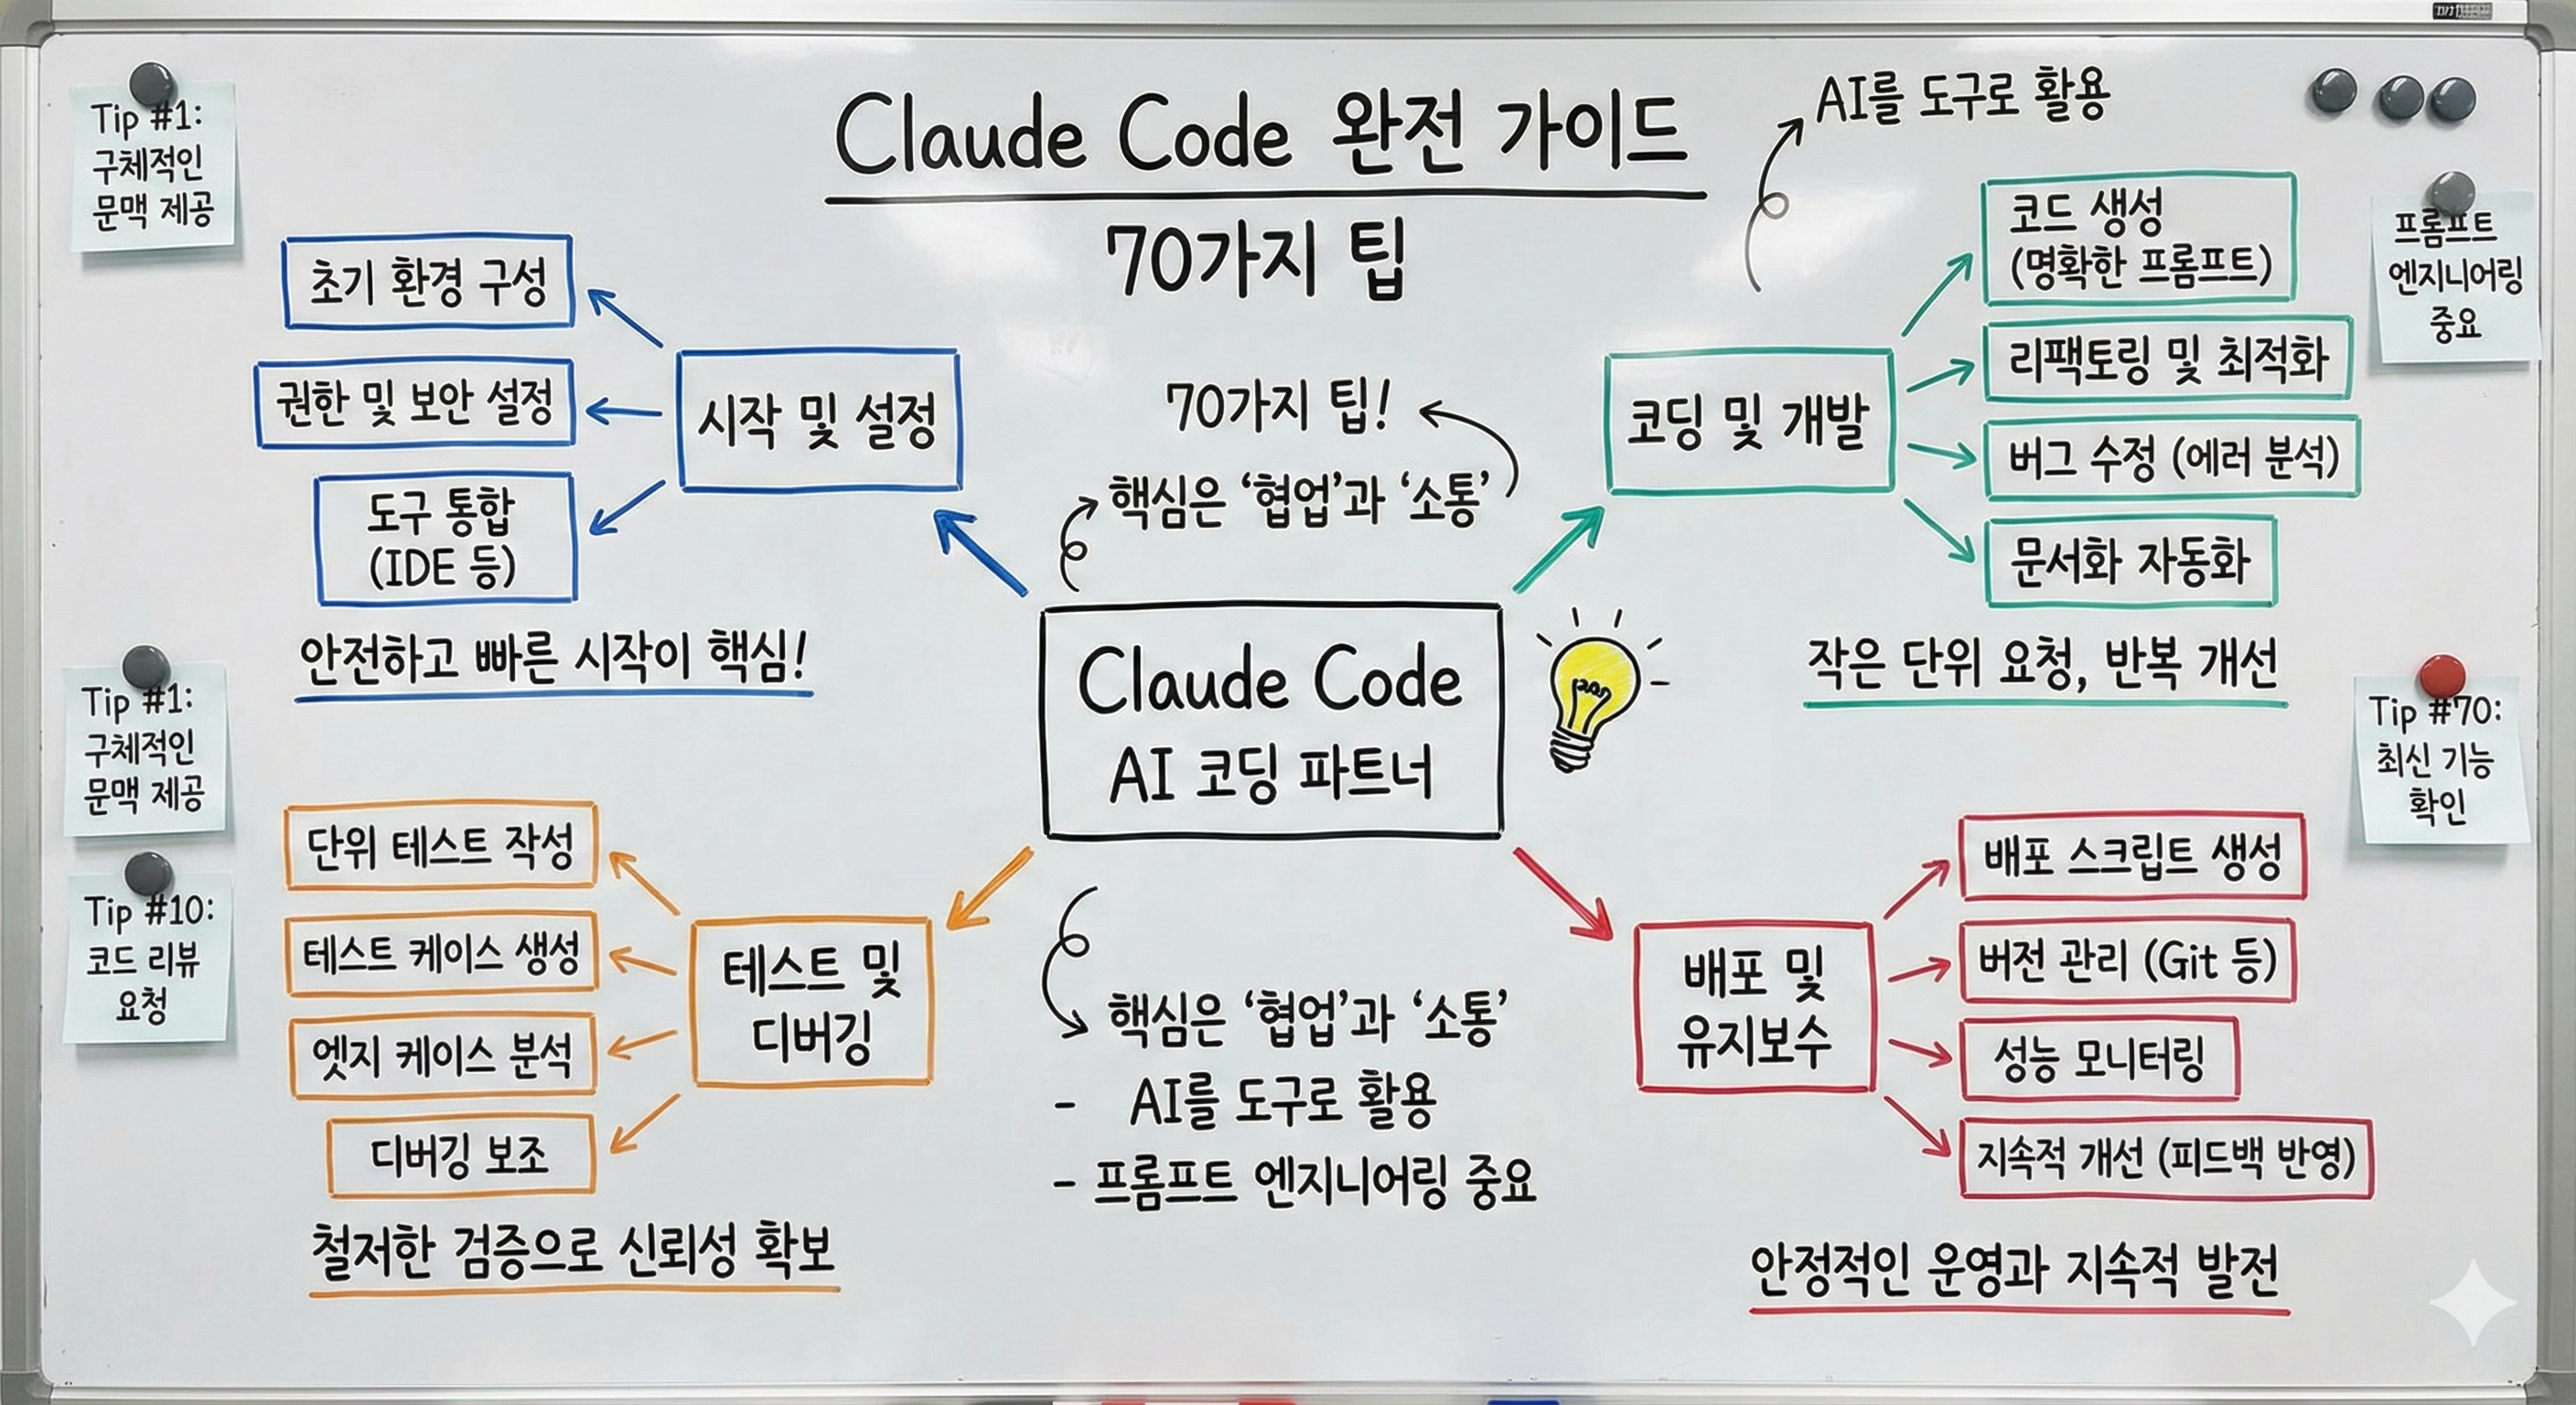 Claude Code 완전 가이드
70가지 팁
AI를 도구로 활용
Tip #1:
구체적인
문맥 제공
프롬프트
엔지니어링
중요
초기 환경 구성
권한 및 보안 설정
도구 통합
(IDE 등)
시작 및 설정
안전하고 빠른 시작이 핵심!
70가지 팁!
핵심은 ‘협업’과 ‘소통’
코딩 및 개발
코드 생성
(명확한 프롬프트)
리팩토링 및 최적화
버그 수정 (에러 분석)
문서화 자동화
작은 단위 요청, 반복 개선
Claude Code
AI 코딩 파트너
Tip #1:
구체적인
문맥 제공
Tip #10:
코드 리뷰
요청
Tip #70:
최신 기능
확인
단위 테스트 작성
테스트 케이스 생성
엣지 케이스 분석
디버깅 보조
테스트 및
디버깅
철저한 검증으로 신뢰성 확보
핵심은 ‘협업’과 ‘소통’
- AI를 도구로 활용
- 프롬프트 엔지니어링 중요
배포 및
유지보수
배포 스크립트 생성
버전 관리 (Git 등)
성능 모니터링
지속적 개선 (피드백 반영)
안정적인 운영과 지속적 발전